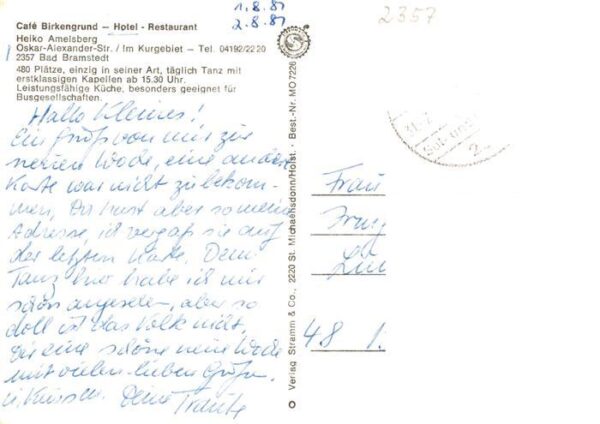 1.8.81
2.8.81
2357
Café Birkengrund — Hotel - Restaurant
Heiko Amelsberg
Oskar-Alexander-Str. / Im Kurgebiet — Tel. 04192/2220
2357 Bad Bramstedt
480 Plätze, einzig in seiner Art, täglich Tanz mit
erstklassigen Kapellen ab 15.30 Uhr.
Leistungsfähige Küche, besonders geeignet für
Busgesellschaften.
Hallo Kleines!
Ein Gruß von mir zur
neuen Woche, eine andere
Karte war nicht zu bekom-
men, Du hast aber so meine
Adresse, ich vergaß sie auf
der letzten Karte. Dein
Tanz hier habe ich mir
schön angesehen, aber so
doll ist das Volk nicht,
Dir eine schöne neue Woche
mit vielen lieben Grüßen
u. Küssen. Deine Traute
Verlag Stramm & Co., 2220 St. Michaelisdonn/Holst. · Best.-Nr. MO 7226
31.7.
2
Frau
48 1.